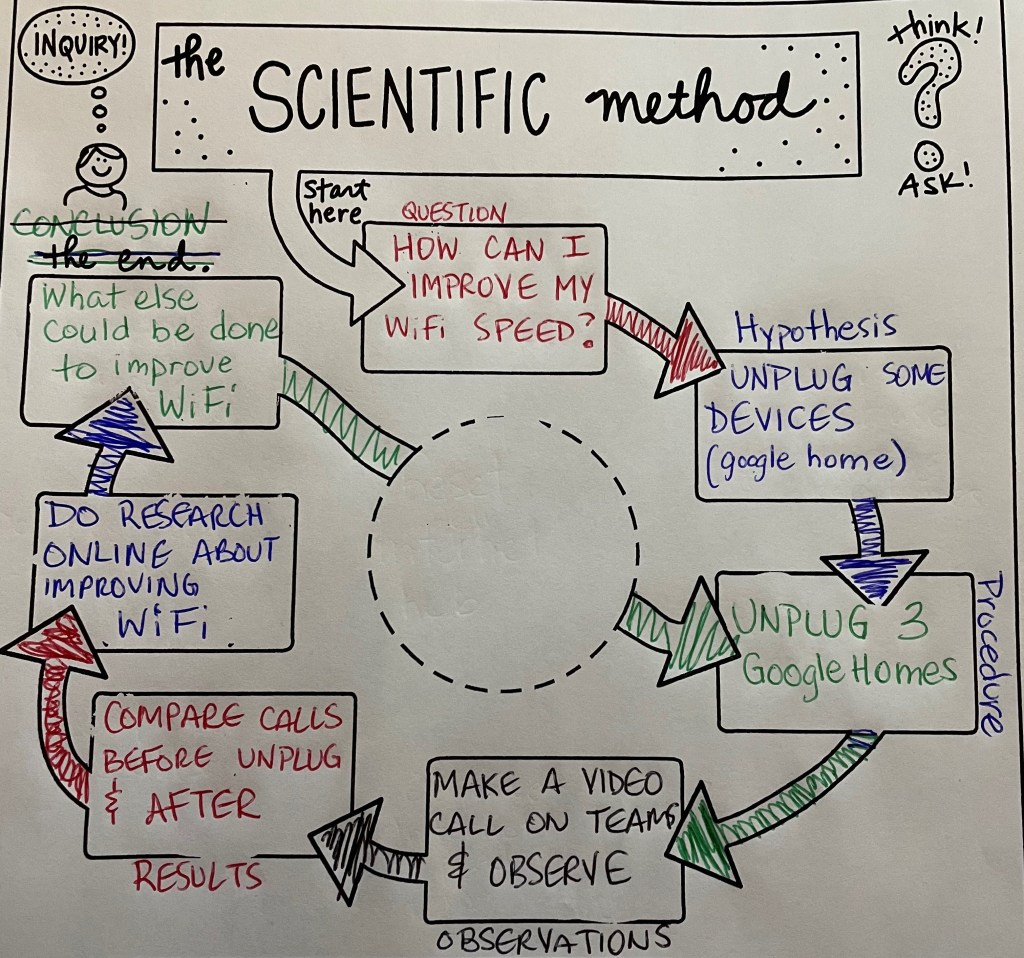 INQUIRY!
the
SCIENTIFIC method
think!
ASK!
Start
here
QUESTION
HOW CAN I
IMPROVE MY
WiFi SPEED?
Hypothesis
UNPLUG SOME
DEVICES
(google home)
Procedure
UNPLUG 3
Google Homes
MAKE A VIDEO
CALL ON TEAMS
& OBSERVE
OBSERVATIONS
COMPARE CALLS
BEFORE UNPLUG
& AFTER
RESULTS
DO RESEARCH
ONLINE ABOUT
IMPROVING
WiFi
CONCLUSION
the end.
What else
could be done
to improve
WiFi